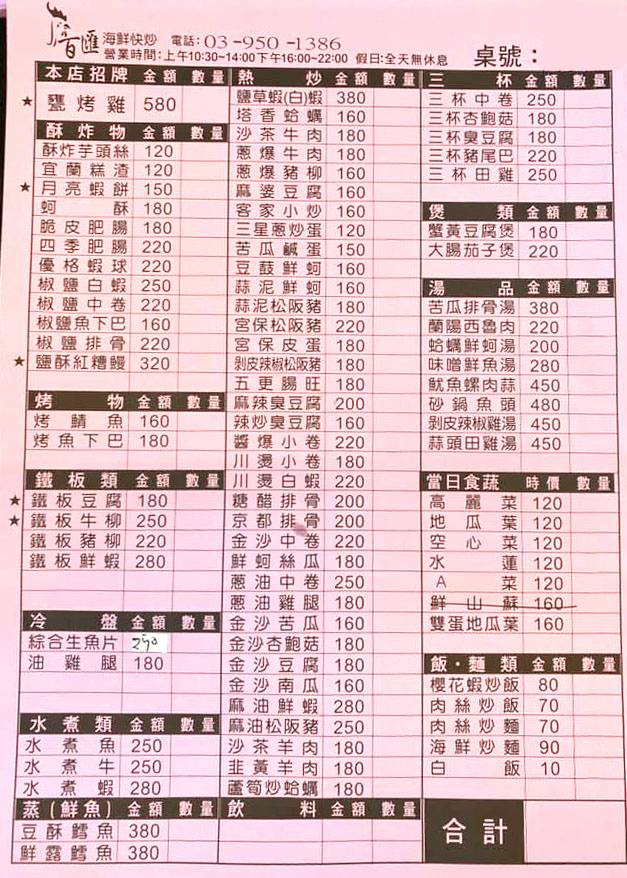 匯 海鮮快炒 電話：03-950-1386
營業時間：上午10:30~14:00下午16:00~22:00 假日：全天無休息 桌號：
本店招牌 金額 數量
★ 甕烤雞 580
酥炸物 金額 數量
酥炸芋頭絲 120
宜蘭糕渣 120
★ 月亮蝦餅 150
蚵酥 180
脆皮肥腸 180
四季肥腸 220
優格蝦球 220
椒鹽白蝦 250
椒鹽中卷 220
椒鹽魚下巴 160
椒鹽排骨 220
★ 鹽酥紅糟鰻 320
烤物 金額 數量
烤鯖魚 160
烤魚下巴 180
鐵板類 金額 數量
★ 鐵板豆腐 180
★ 鐵板牛柳 250
鐵板豬柳 220
鐵板鮮蝦 280
冷盤 金額 數量
綜合生魚片 250
油雞腿 180
水煮類 金額 數量
水煮魚 250
水煮牛 250
水煮蝦 280
蒸(鮮魚) 金額 數量
豆酥鱈魚 380
鮮露鱈魚 380
熱炒 金額 數量
鹽草蝦(白)蝦 380
塔香蛤蠣 160
沙茶牛肉 180
蔥爆牛肉 180
蔥爆豬柳 160
麻婆豆腐 160
客家小炒 160
三星蔥炒蛋 120
苦瓜鹹蛋 150
豆鼓鮮蚵 160
蒜泥鮮蚵 160
蒜泥松阪豬 180
宮保松阪豬 220
宮保皮蛋 180
剝皮辣椒松阪豬 180
五更腸旺 180
麻辣臭豆腐 200
辣炒臭豆腐 160
醬爆小卷 220
川燙小卷 180
川燙白蝦 220
糖醋排骨 200
京都排骨 200
金沙中卷 220
鮮蚵絲瓜 180
蔥油中卷 250
蔥油雞腿 180
金沙苦瓜 160
金沙杏鮑菇 180
金沙豆腐 180
金沙南瓜 160
麻油鮮蝦 280
麻油松阪豬 250
沙茶羊肉 180
韭黃羊肉 180
蘆筍炒蛤蠣 180
飲料 金額 數量
三杯 金額 數量
三杯中卷 250
三杯杏鮑菇 180
三杯臭豆腐 180
三杯豬尾巴 220
三杯田雞 250
煲類 金額 數量
蟹黃豆腐煲 180
大腸茄子煲 220
湯品 金額 數量
苦瓜排骨湯 380
蘭陽西魯肉 220
蛤蠣鮮蚵湯 200
味噌鮮魚湯 280
魷魚螺肉蒜 450
砂鍋魚頭 480
剝皮辣椒雞湯 450
蒜頭田雞湯 450
當日食蔬 時價 數量
高麗菜 120
地瓜葉 120
空心菜 120
水蓮 120
A菜 120
鮮山蘇 160
雙蛋地瓜葉 160
飯・麵類 金額 數量
櫻花蝦炒飯 80
肉絲炒飯 70
肉絲炒麵 70
海鮮炒麵 90
白飯 10
合計